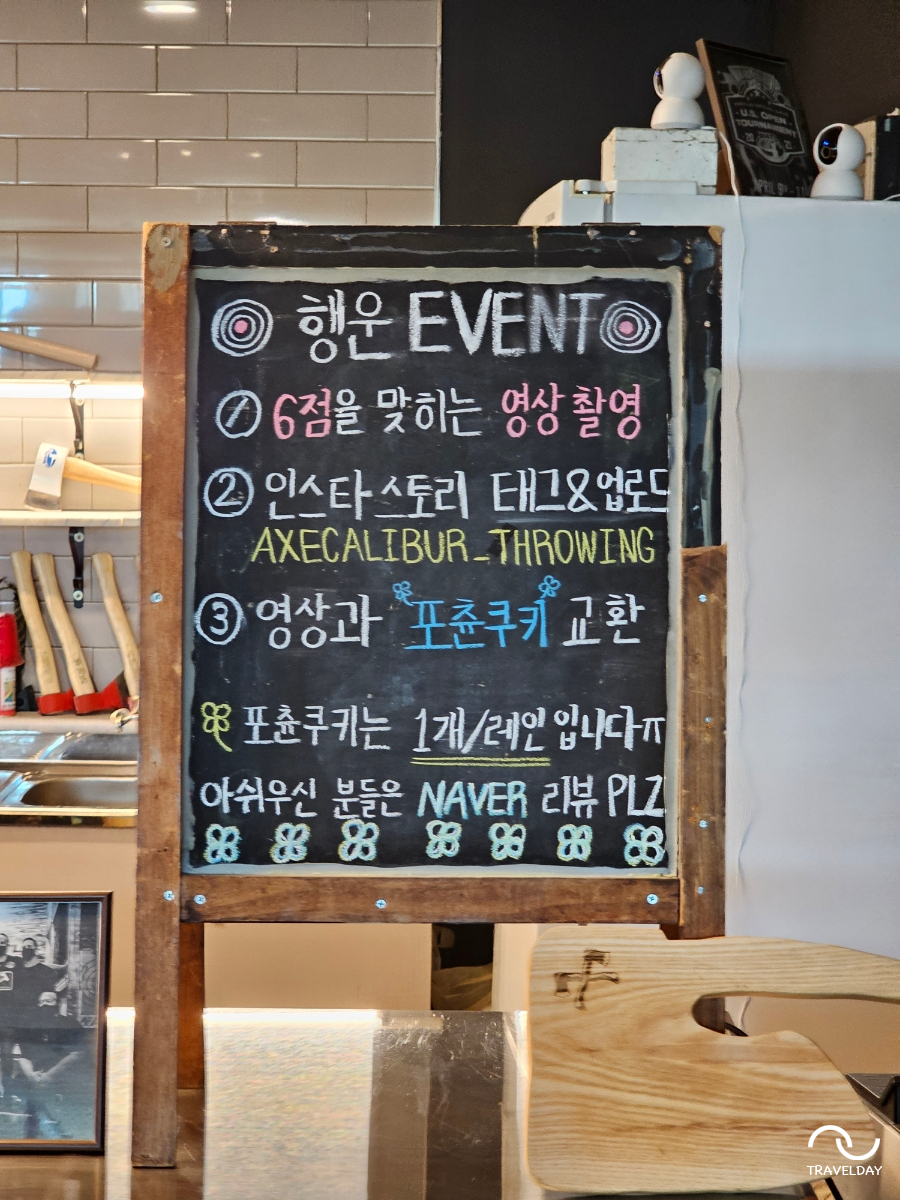 U.S. OPEN
TOURNAMENT
20 2
APRIL 9
행운 EVENT
① 6점을 맞히는 영상 촬영
② 인스타 스토리 태그&업로드
AXECALIBUR_THROWING
③ 영상과 포츈쿠키 교환
포츈쿠키는 1개/레인 입니다ㅠ
아쉬우신 분들은 NAVER 리뷰 PLZ
TRAVELDAY